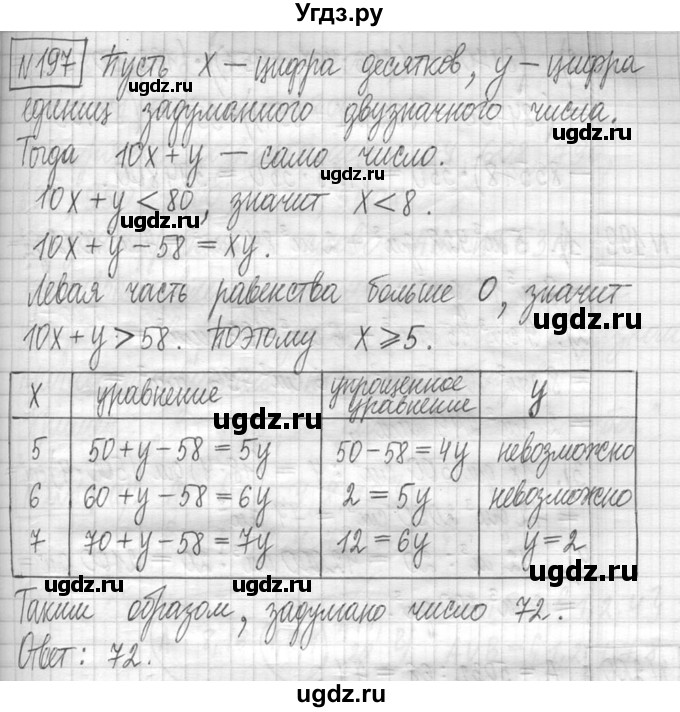 Угдз.ру
№197 Пусть x – цифра десятков, y – цифра
ugdz.ru
единиц задуманного двузначного числа.
ugdz.ru
Тогда 10x+y – само число.
ugdz.ru
10x+y<80, значит x<8.
ugdz.ru
10x+y-58=xy.
ugdz.ru
Левая часть равенства больше 0, значит
ugdz.ru
10x+y>58. Поэтому x⩾5.
ugdz.ru
x уравнение упрощенное уравнение y
ugdz.ru
5 50+y-58=5y 50-58=4y невозможно
ugdz.ru
6 60+y-58=6y 2=5y невозможно
7 70+y-58=7y 12=6y y=2
ugdz.ru ugdz.ru ugdz.ru
Таким образом, задумано число 72.
ugdz.ru
Ответ: 72.
ugdz.ru
ugdz.ru